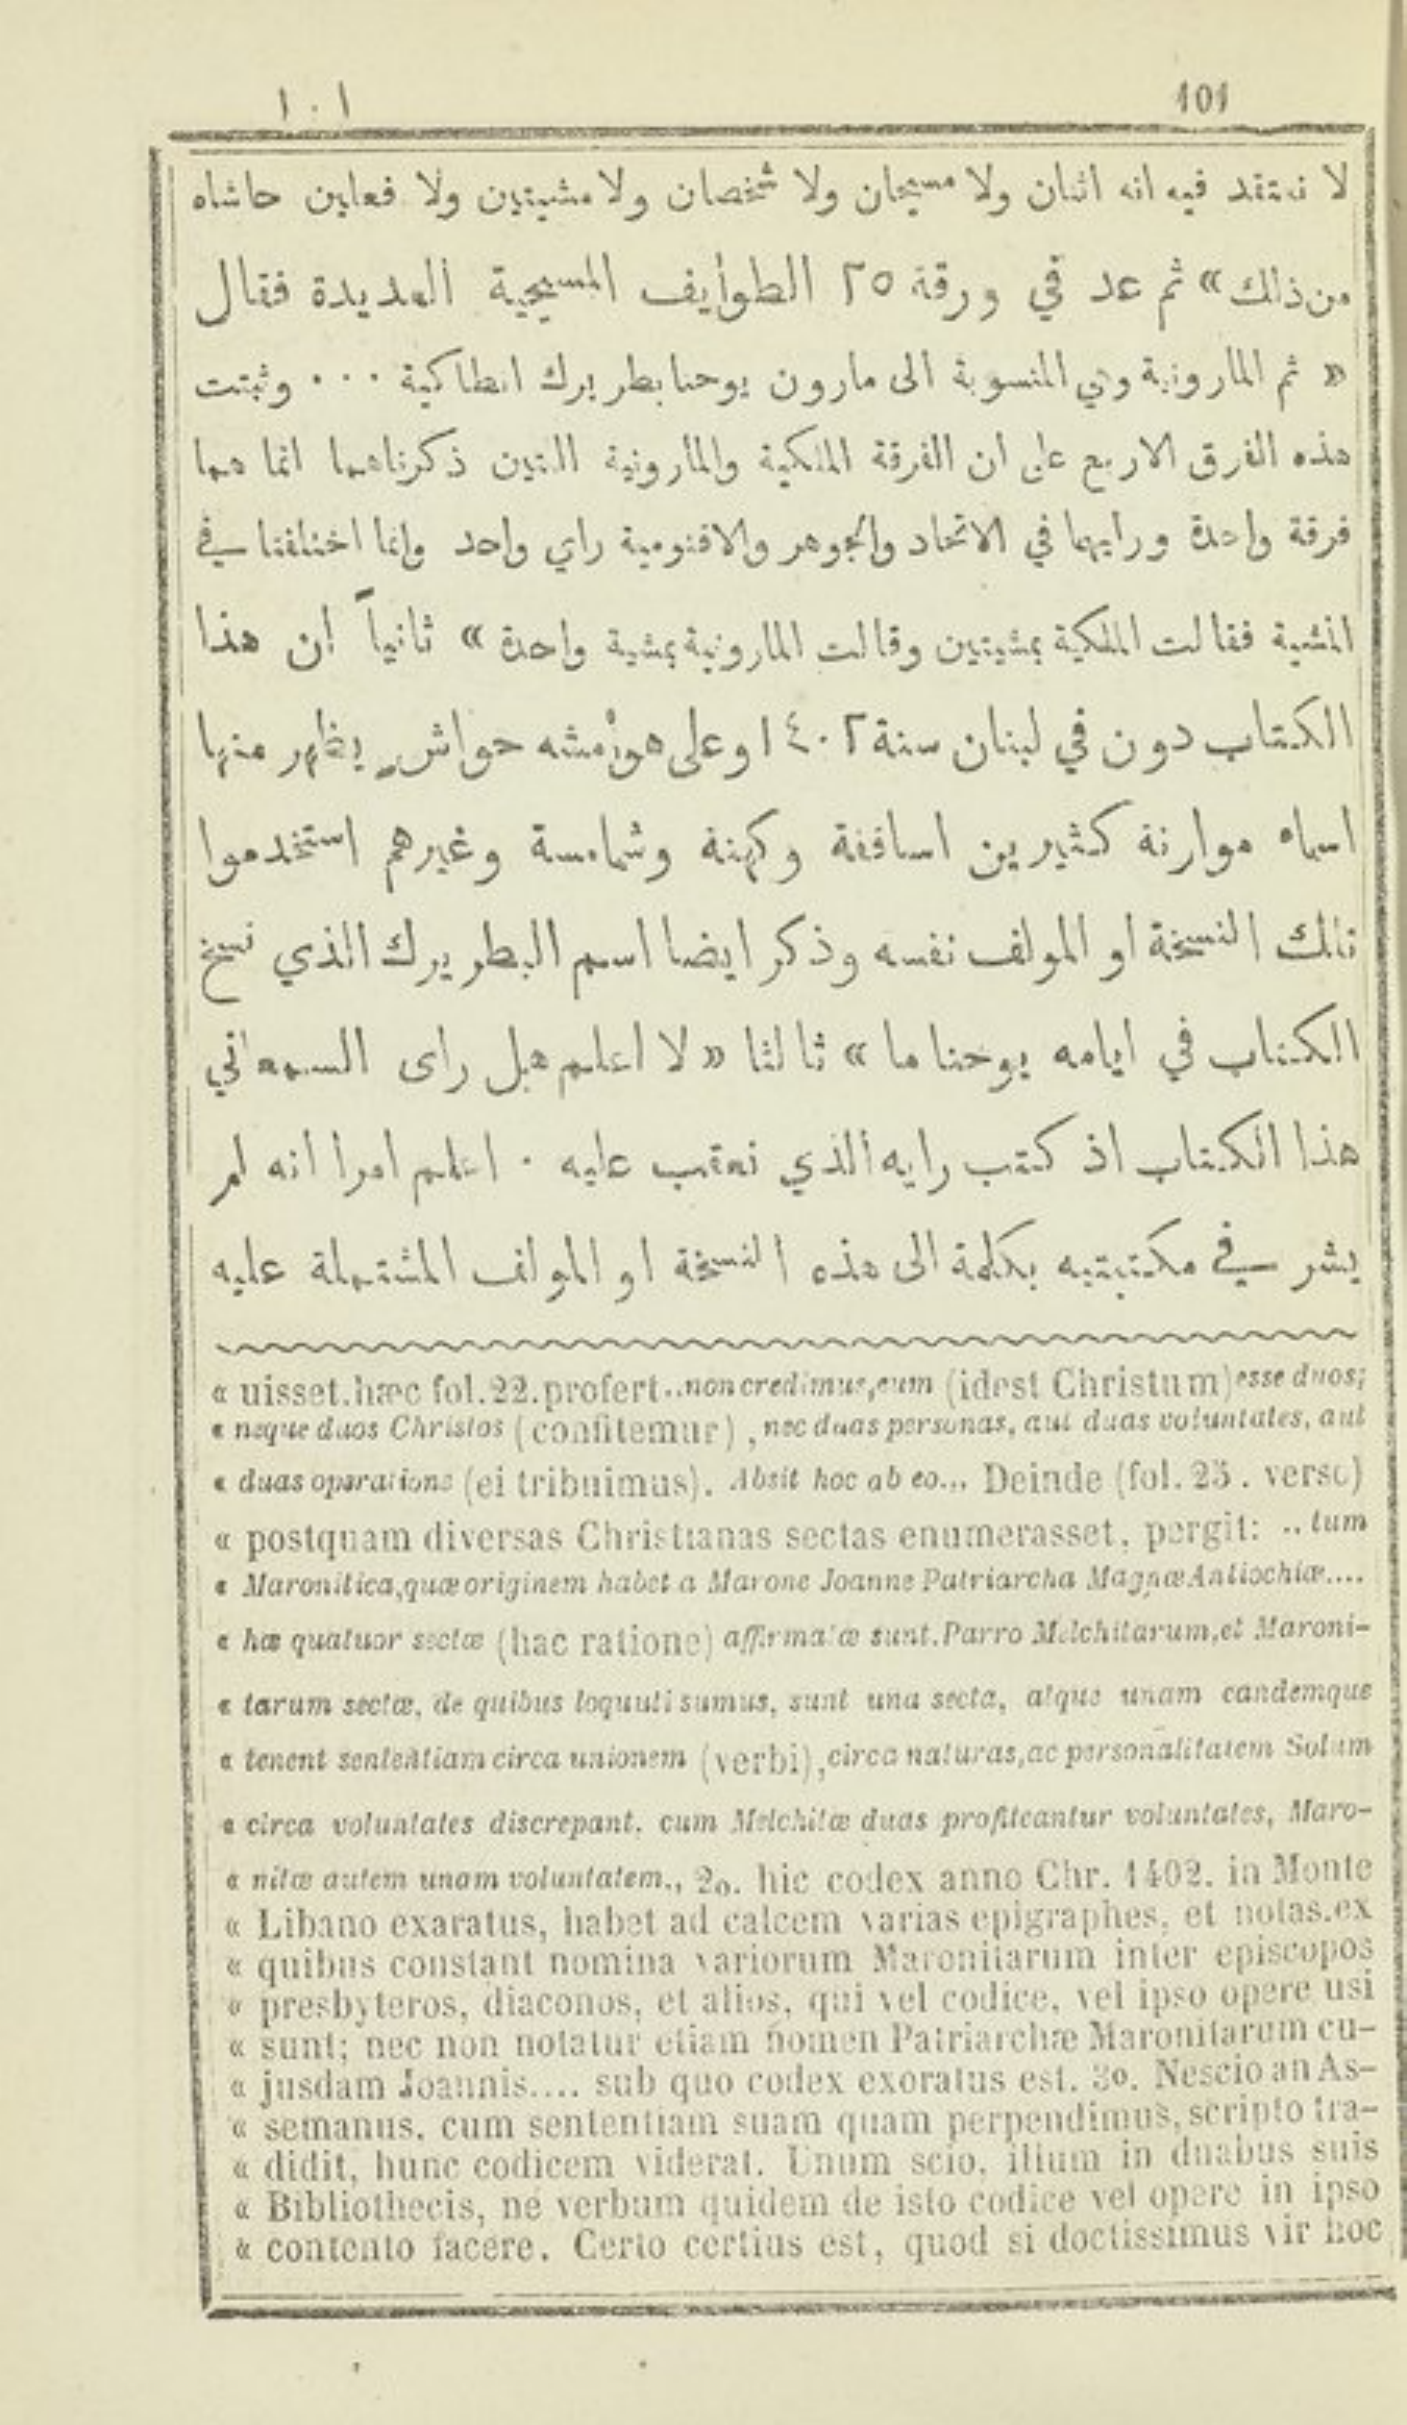 ١٠١ 101
لا نعتقد فيه انه اثنان ولا مسيحان ولا شخصان ولا مشيتين ولا فعلين حاشاه
من ذلك» ثم عد في ورقة ٢٥ الطوايف المسيحية العديدة فقال
« ثم المارونية وهي المنسوبة الى مارون يوحنا بطريرك انطاكية ٠٠٠ وثبتت
هذه الفرق الاربع على ان الفرقة الملكية والمارونية اللتين ذكرناهما انما هما
فرقة واحدة ورايهما في الاتحاد والجوهر والاقنومية راي واحد وانما اختلفتا في
المشية فقالت الملكية بمشيتين وقالت المارونية بمشية واحدة » ثانياً ان هذا
الكتاب دون في لبنان سنة ١٤٠٢ وعلى هوامشه حواشٍ يظهر منها
اسماء موارنة كثيرين اساقفة وكهنة وشمامسة وغيرهم استخدموا
تلك النسخة او المولف نفسه وذكر ايضا اسم البطريرك الذي نسخ
الكتاب في ايامه يوحنا ما » ثالثا « لا اعلم هل راى السمعاني
هذا الكتاب اذ كتب رايه الذي نعقب عليه · اعلم امرا انه لم
يشر في مكتبتيه بكلمة الى هذه النسخة او المولف المشتملة عليه
« uisset.hæc fol.22.profert..non credimus,eum (idest Christum) esse duos;
« neque duos Christos (confitemur) , nec duas personas, aut duas voluntates, aut
« duas operations (ei tribuimus). Absit hoc ab eo... Deinde (fol. 25 . verso)
« postquam diversas Christianas sectas enumerasset, pergit: ..tum
« Maronitica,quæ originem habet a Marone Joanne Patriarcha Magnæ Antiochiæ....
« hæ quatuor sectæ (hac ratione) affirmatæ sunt.Parro Melchitarum,et Maroni-
« tarum sectæ, de quibus loquuti sumus, sunt una secta, atque unam eandemque
« tenent sententiam circa unionem (verbi),circa naturas,ac personalitatem Solum
« circa voluntates discrepant. cum Melchitæ duas profiteantur voluntates, Maro-
« nitæ autem unam voluntatem., 2o. hic codex anno Chr. 1402. in Monte
« Libano exaratus, habet ad calcem varias epigraphes, et notas.ex
« quibus constant nomina variorum Maronitarum inter episcopos
« presbyteros, diaconos, et alios, qui vel codice, vel ipso opere usi
« sunt; nec non notatur etiam nomen Patriarchæ Maronitarum cu-
« jusdam Joannis.... sub quo codex exoratus est. 3o. Nescio an As-
« semanus, cum sententiam suam quam perpendimus, scripto tra-
« didit, hunc codicem viderat. Unum scio, illum in duabus suis
« Bibliothecis, ne verbum quidem de isto codice vel opere in ipso
« contento facere. Certo certius est, quod si doctissimus vir hoc